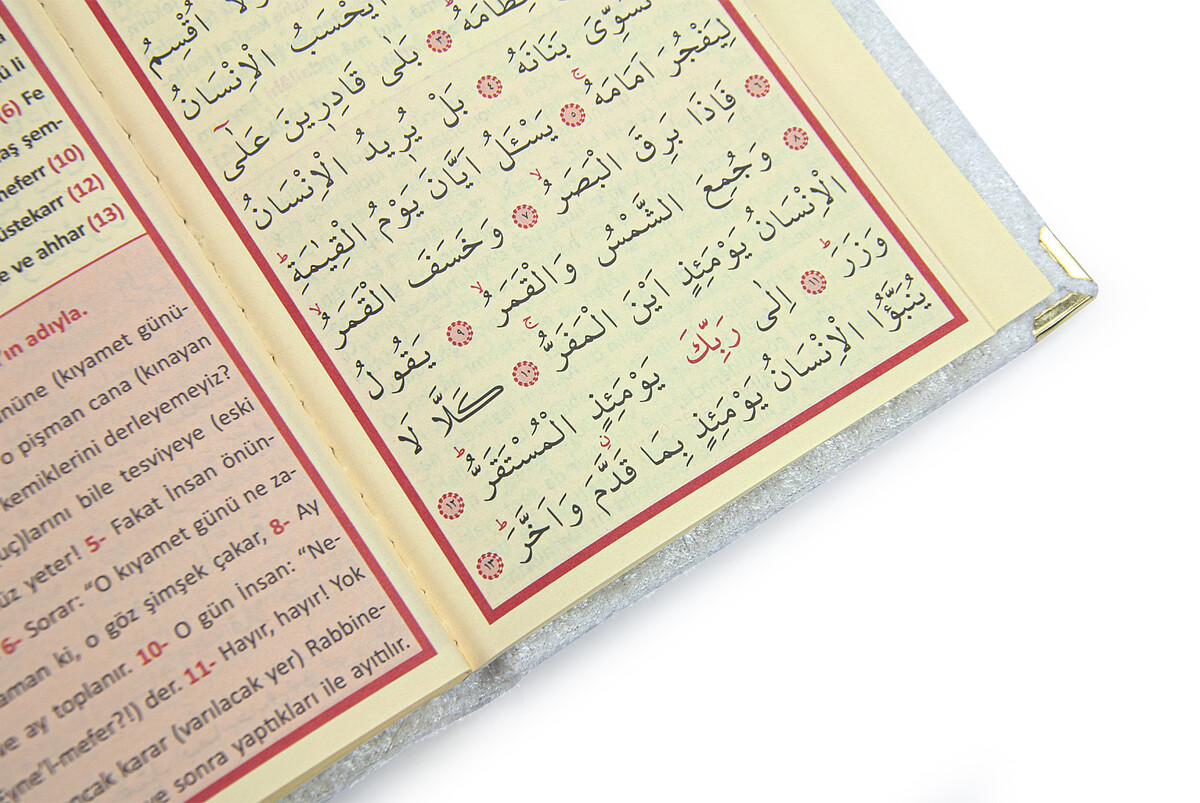 اُقْسِمُ
يَحْسَبُ الْاِنْسَانُ
بَلٰى قَادِر۪ينَ عَلٰٓى ٣
نُسَوِّيَ بَنَانَهُ ٤ بَلْ يُر۪يدُ الْاِنْسَانُ
لِيَفْجُرَ اَمَامَهُۚ ٥ يَسْـَٔلُ اَيَّانَ يَوْمُ الْقِيٰمَةِۜ
٦ فَاِذَا بَرِقَ الْبَصَرُۙ ٧ وَخَسَفَ الْقَمَرُۙ
٨ وَجُمِعَ الشَّمْسُ وَالْقَمَرُۙ ٩ يَقُولُ
الْاِنْسَانُ يَوْمَئِذٍ اَيْنَ الْمَفَرُّۚ ١٠ كَلَّا لَا
وَزَرَۜ ١١ اِلٰى رَبِّكَ يَوْمَئِذٍ الْمُسْتَقَرُّۜ ١٢
يُنَبَّؤُا الْاِنْسَانُ يَوْمَئِذٍ بِمَا قَدَّمَ وَاَخَّرَۜ ١٣
li
(6) Fe
şem-
meferr (10)
üstekarr (12)
e ve ahhar (13)
'ın adıyla.
nüne (kıyamet günü-
o pişman cana (kınayan
kemiklerini derleyemeyiz?
uç)larını bile tesviyeye (eski
üz yeter! 5- Fakat İnsan önün-
6- Sorar: “O kıyamet günü ne za-
aman ki, o göz şimşek çakar, 8- Ay
ve ay toplanır. 10- O gün İnsan: “Ne-
Eyne'l-mefer?!) der. 11- Hayır, hayır! Yok
ancak karar (varılacak yer) Rabbine-
ve sonra yaptıkları ile ayıtılır.